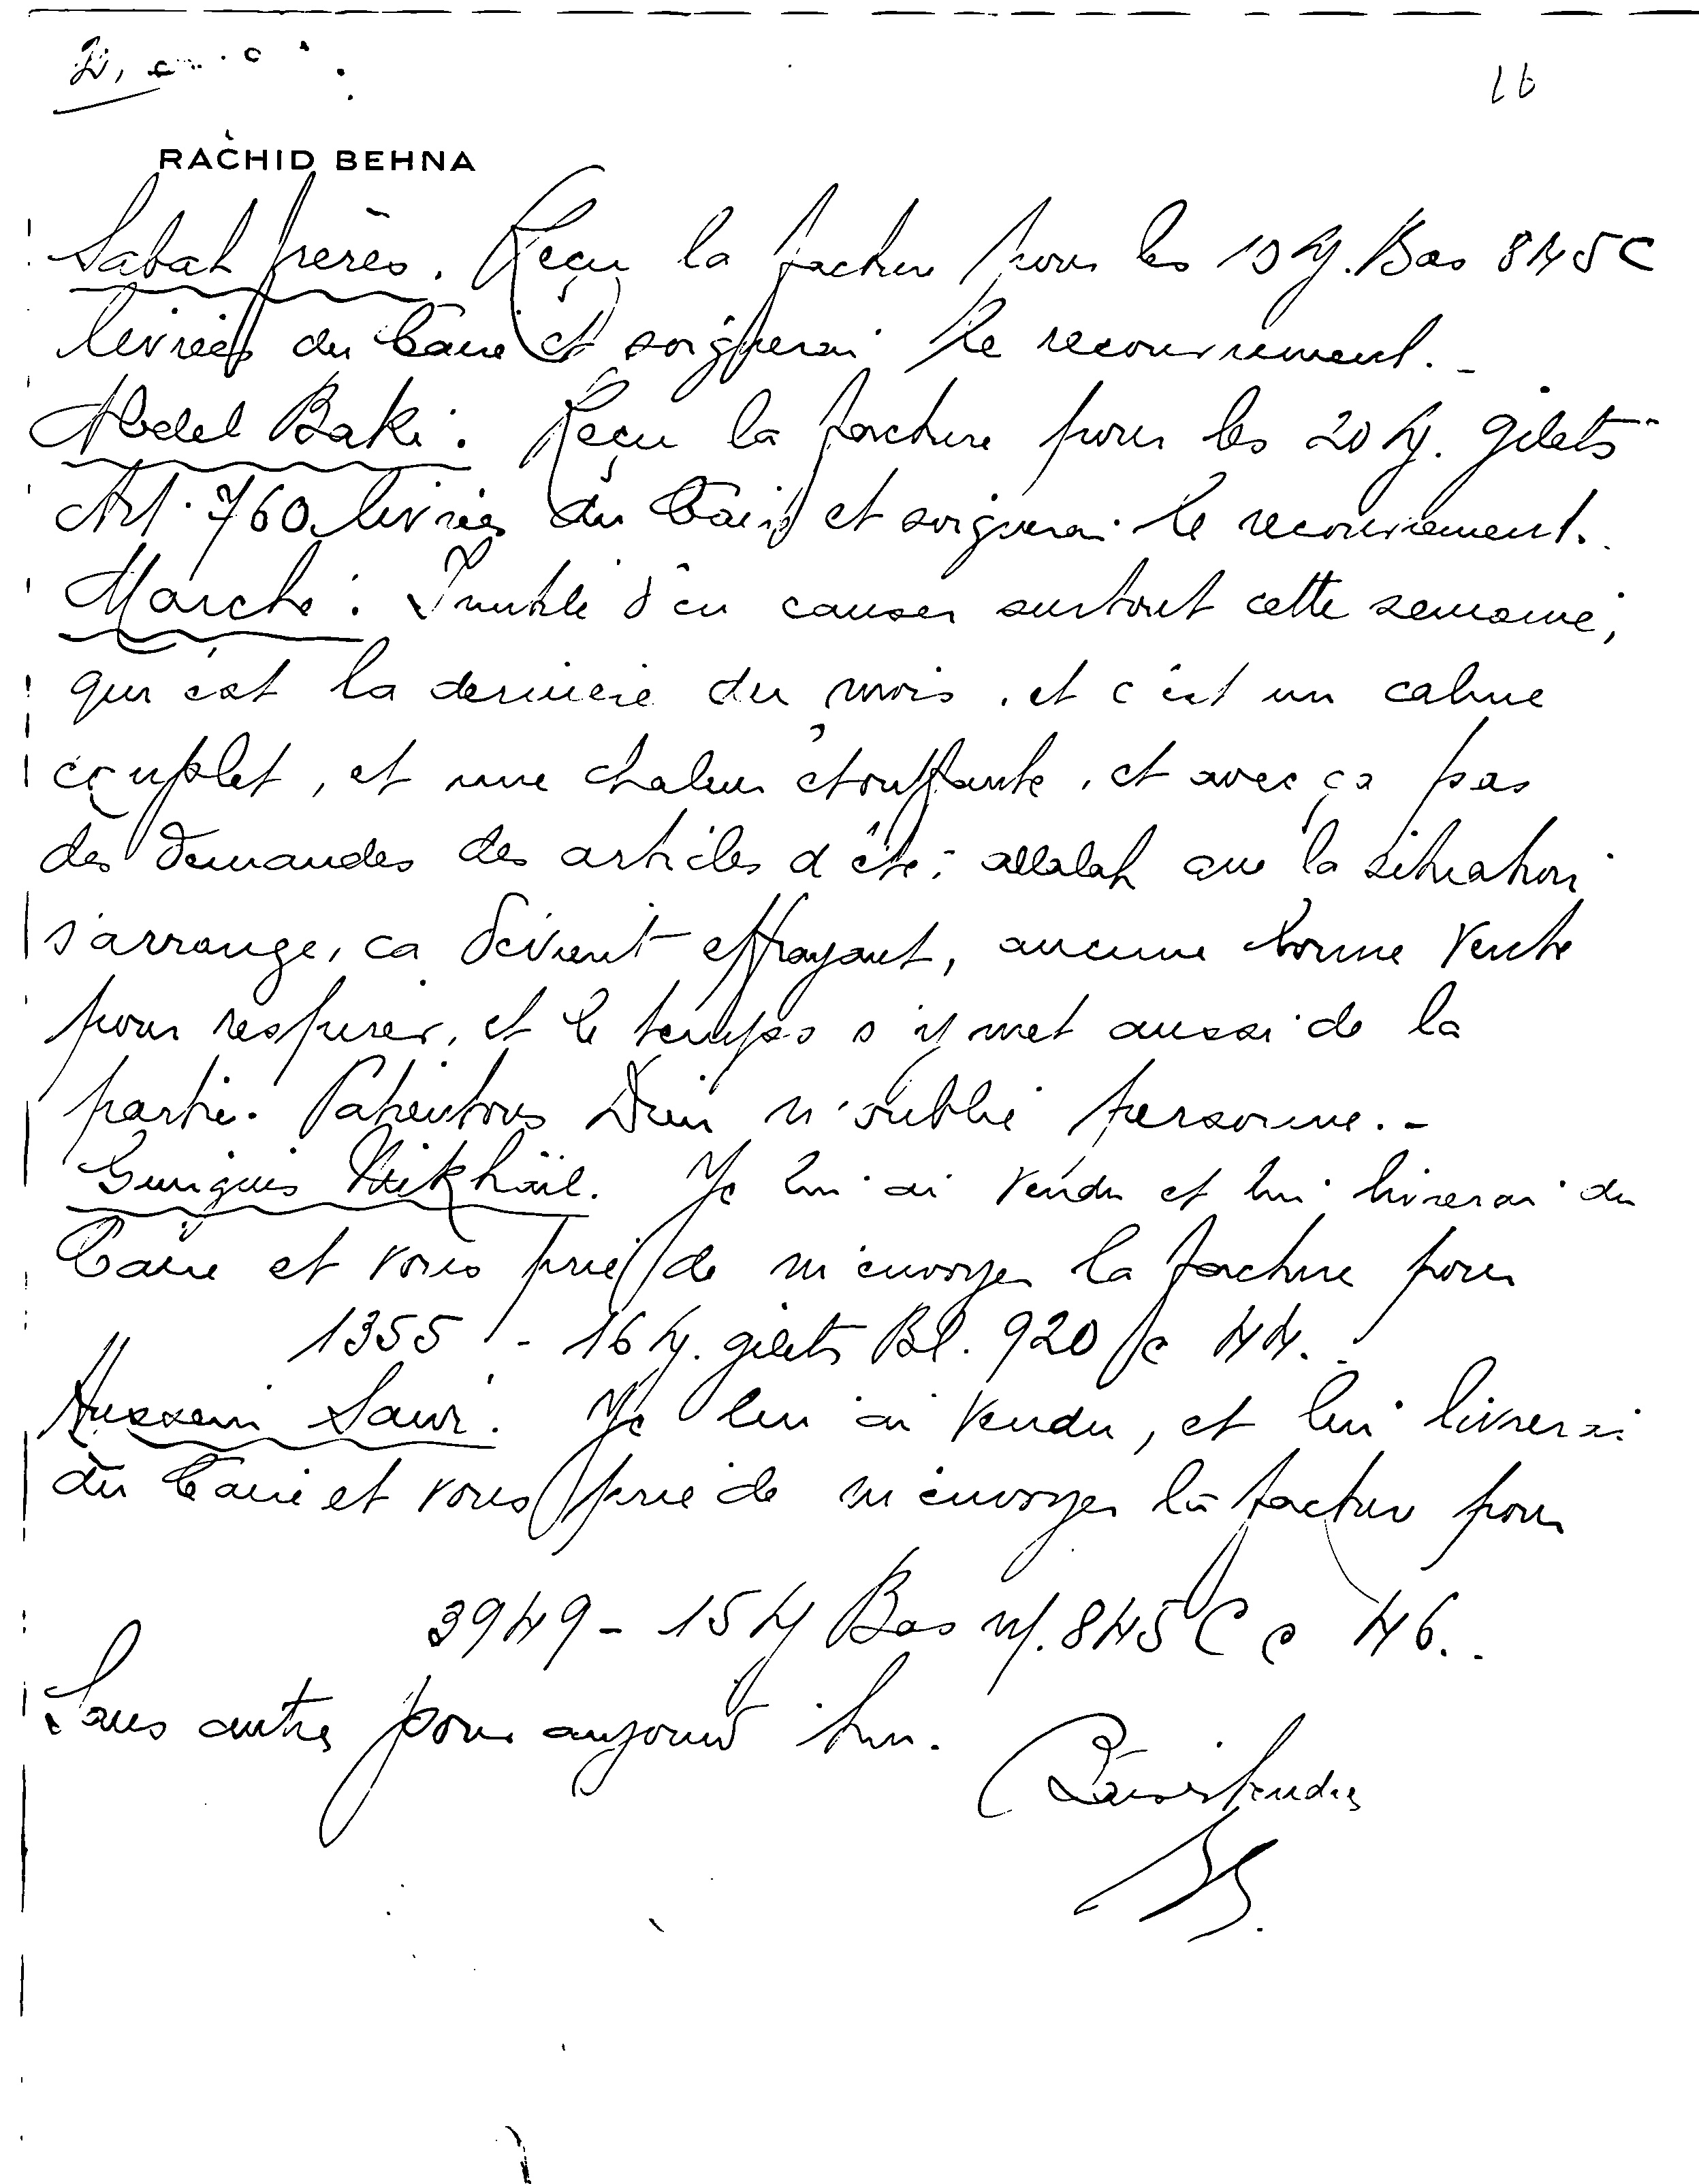 16
RACHID BEHNA
Sabat frères. Reçu la facture pour les 15 Bas 845 C
livrées du Caire et soignerai le recouvrement. -
Abdel Baki : Reçu la facture pour les 20 gilets
Art. 760 livrées du Caire et soignerai le recouvrement.
Marche : Inutile d'en causer surtout cette semaine,
qui est la dernière du mois, et c'est un calme
complet, et une chaleur étouffante, et avec ça pas
des demandes des articles d'été ; allalah que la situation
s'arrange, ca devient effrayant, aucune bonne vente
pour respirer, et le temps s'y met aussi de la
partie. Patientons Dieu n'oublie personne. -
Guirguis Mikhaïl. Je lui ai vendu et lui livrerai du
Caire et vous prie de m'envoyer la facture pour
1355 - 16 gilets Bl. 920 44.
Hussein Je lui ai vendu, et lui livrerai
du Caire et vous prie de m'envoyer la facture pour
3949 - 15 Bas 845 C 46.
Sans autre pour aujourd'hui.